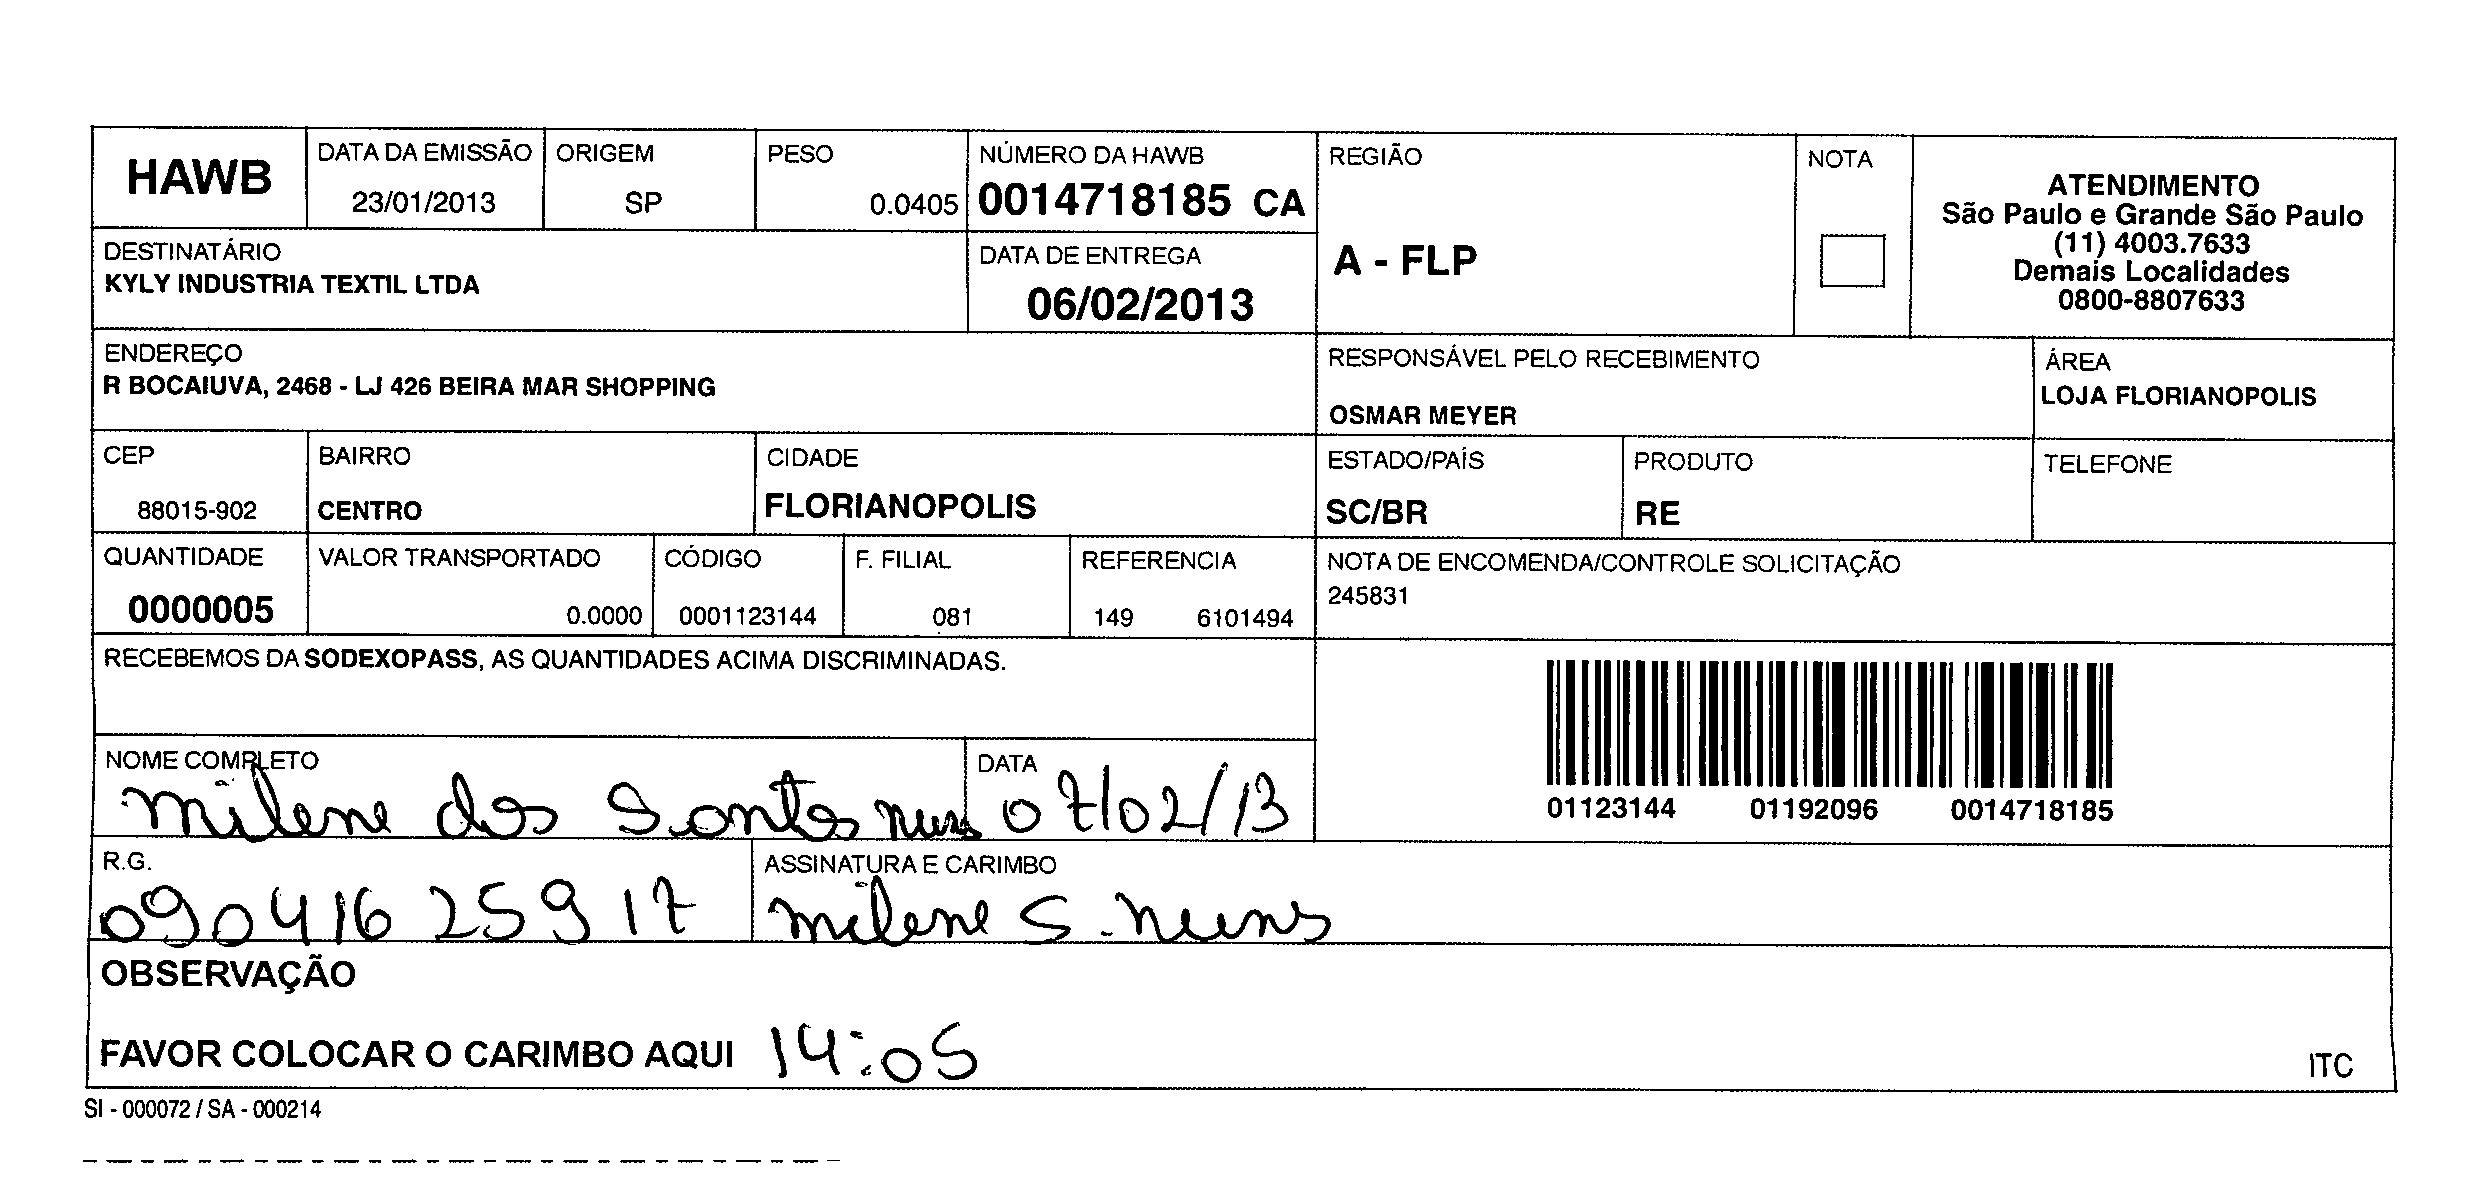 HAWB
DATA DA EMISSÃO
23/01/2013
ORIGEM
SP
PESO
0.0405
NÚMERO DA HAWB
0014718185 CA
REGIÃO
A - FLP
NOTA
ATENDIMENTO
São Paulo e Grande São Paulo
(11) 4003.7633
Demais Localidades
0800-8807633
DESTINATÁRIO
KYLY INDUSTRIA TEXTIL LTDA
DATA DE ENTREGA
06/02/2013
ENDEREÇO
R BOCAIUVA, 2468 - LJ 426 BEIRA MAR SHOPPING
RESPONSÁVEL PELO RECEBIMENTO
OSMAR MEYER
ÁREA
LOJA FLORIANOPOLIS
CEP
88015-902
BAIRRO
CENTRO
CIDADE
FLORIANOPOLIS
ESTADO/PAÍS
SC/BR
PRODUTO
RE
TELEFONE
QUANTIDADE
0000005
VALOR TRANSPORTADO
0.0000
CÓDIGO
0001123144
F. FILIAL
081
REFERENCIA
149 6101494
NOTA DE ENCOMENDA/CONTROLE SOLICITAÇÃO
245831
RECEBEMOS DA SODEXOPASS, AS QUANTIDADES ACIMA DISCRIMINADAS.
01123144 01192096 0014718185
NOME COMPLETO
Milene dos Santos
DATA
07/02/13
R.G.
09041625917
ASSINATURA E CARIMBO
Milene S.
OBSERVAÇÃO
FAVOR COLOCAR O CARIMBO AQUI 14:05
ITC
SI - 000072 / SA - 000214